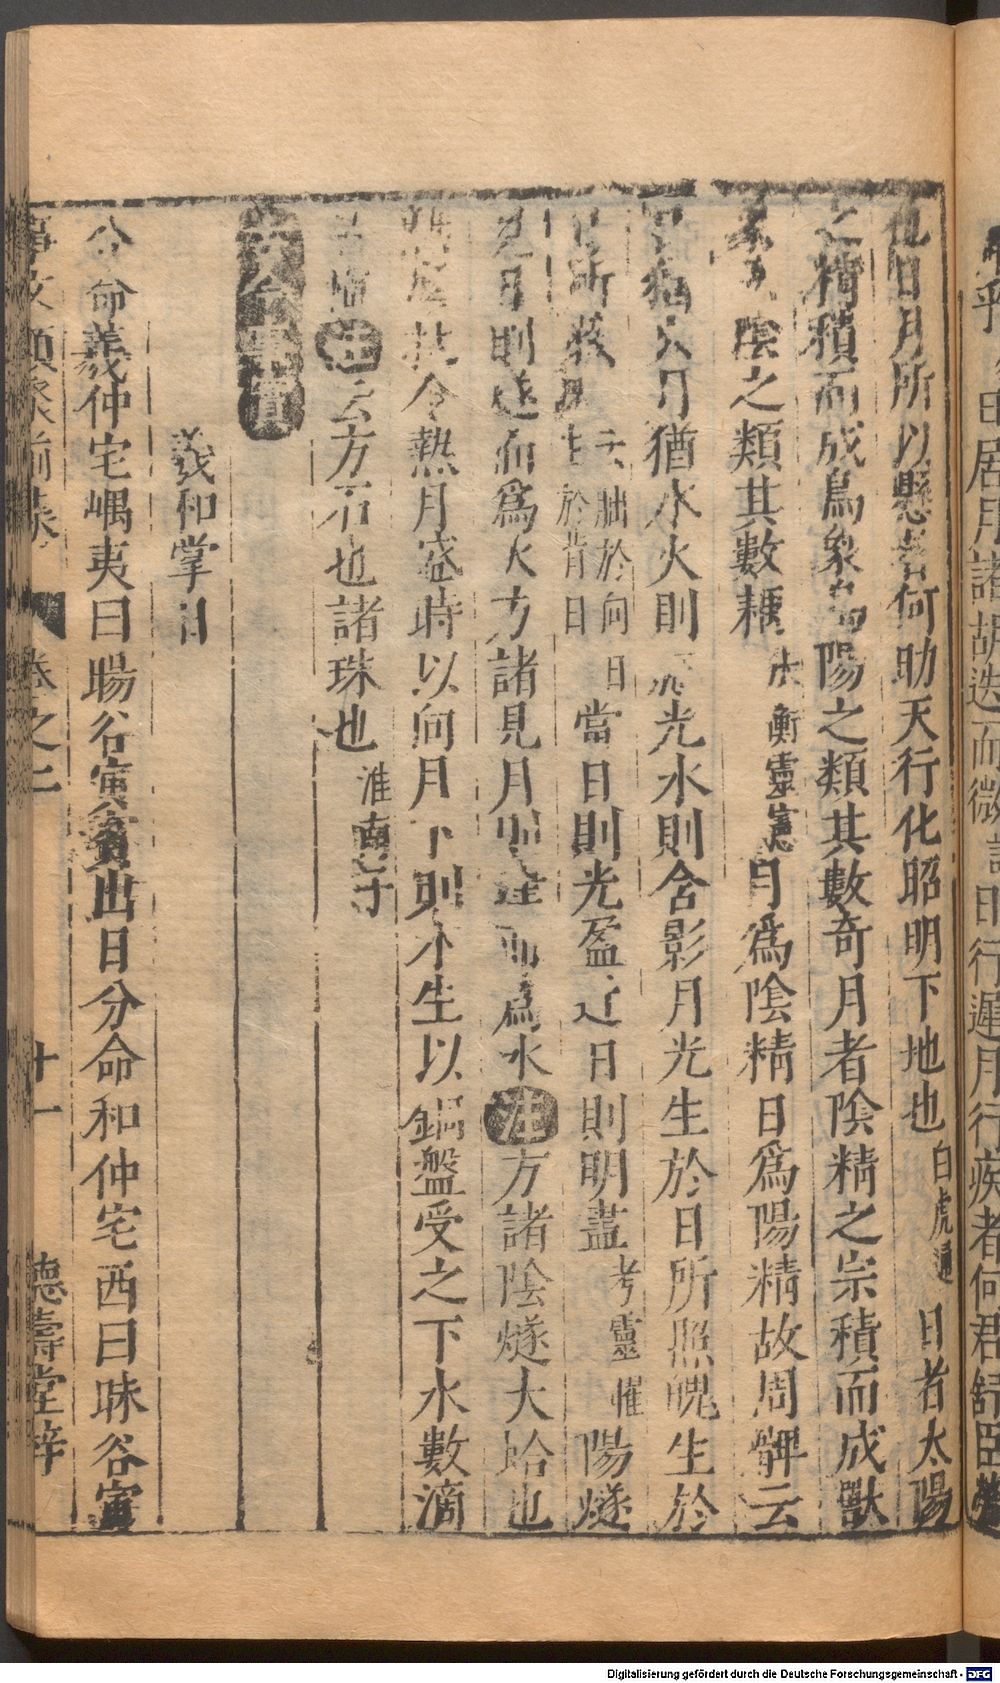 乎 田居月諸胡迭而微 日行遲月行疾者何君舒臣勞
也日月所以懸者何助天行化昭明下地也白虎通 日者太陽
之精積而成烏象烏陽之類其數奇月者陰精之宗積而成獸
陰之類其數耦 衡靈憲 月爲陰精日爲陽精故周髀云
日猶火月猶水火則光水則含影月光生於日所照魄生於
日所蔽 月生 云朏於向日 於背日 當日則光盈近日則明盡 考靈 陽燧
見日則 而爲火方諸見月則 而爲水注方諸陰燧大蛤也
令熱月盛時以向月下則水生以銅盤受之下水數滴
注云方石也諸珠也 淮南子
古今事實
羲和掌日
分命羲仲宅嵎夷曰暘谷寅賓出日分命和仲宅西曰昧谷寅
事文類聚前集 卷之二 十一 德壽堂梓
Digitalisierung gefördert durch die Deutsche Forschungsgemeinschaft - DFG